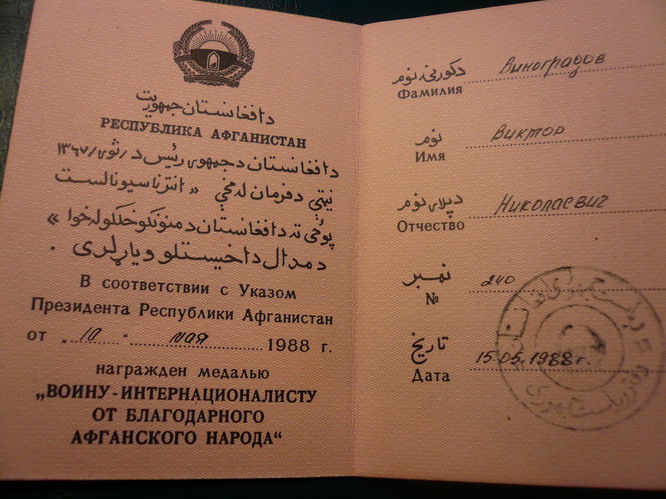 دافغانستان جمهوریت
РЕСПУБЛИКА АФГАНИСТАН
دافغانستان دجمهوری رئیس د / ثور / ۱۳۶۷
نیټې دفرمان له مخې « انترناسیونالست
پوځي ته دافغانستان دمننوکوخلکولخوا »
دمدال داخیستلو ویاړلری .
В соответствии с Указом
Президента Республики Афганистан
от „ 10 “ мая 1988 г.
награжден медалью
„ВОИНУ-ИНТЕРНАЦИОНАЛИСТУ
ОТ БЛАГОДАРНОГО
АФГАНСКОГО НАРОДА“
دکورنۍ نوم
Фамилия Виноградов
نوم
Имя Виктор
دپلار نوم
Отчество Николаевич
نمبر
№ 240
تاریخ
Дата 15.05.1988 г.